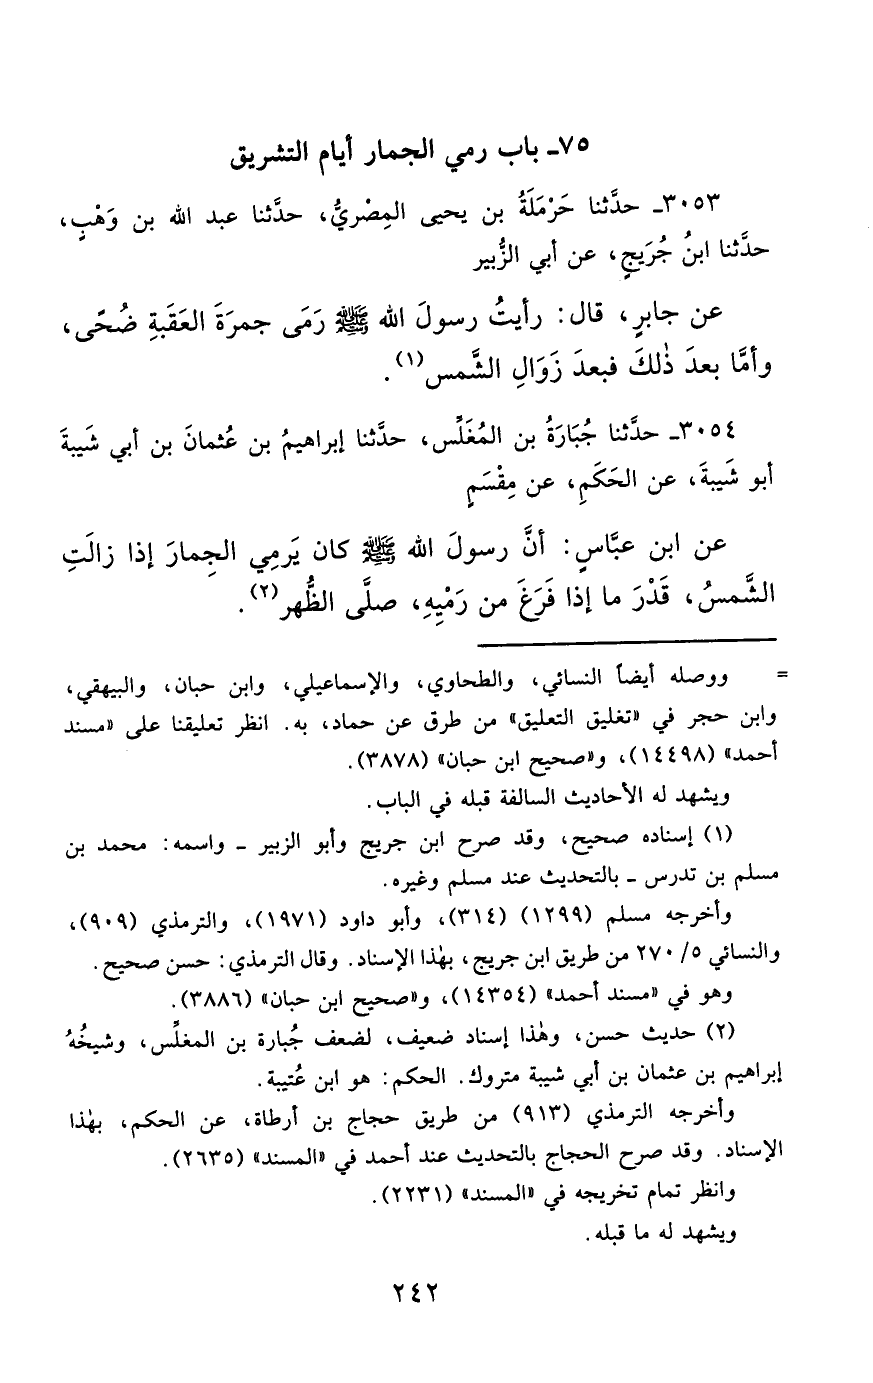 ٧٥ـ باب رمي الجمار أيام التشريق
٣٠٥٣ـ حدَّثنا حَرْمَلَةُ بن يحيى المِصْريُّ، حدَّثنا عبد الله بن وَهْبٍ،
حدَّثنا ابنُ جُرَيجٍ، عن أبي الزُّبير
عن جابرٍ، قال: رأيتُ رسولَ الله ﷺ رَمَى جمرَةَ العَقَبةِ ضُحًى،
وأمَّا بعدَ ذٰلكَ فبعدَ زَوَالِ الشَّمس(١).
٣٠٥٤ـ حدَّثنا جُبَارَةُ بن المُغَلِّس، حدَّثنا إبراهيمُ بن عُثمانَ بن أبي شَيبةَ
أبو شَيبةَ، عن الحَكَمِ، عن مِقْسَمٍ
عن ابن عبَّاسٍ: أنَّ رسولَ الله ﷺ كان يَرمِي الجِمارَ إذا زالَتِ
الشَّمسُ، قَدْرَ ما إذا فَرَغَ من رَمْيِهِ، صلَّى الظُّهر(٢).
= ووصله أيضاً النسائي، والطحاوي، والإسماعيلي، وابن حبان، والبيهقي،
وابن حجر في «تغليق التعليق» من طرق عن حماد، به. انظر تعليقنا على «مسند
أحمد» (١٤٤٩٨)، و«صحيح ابن حبان» (٣٨٧٨).
ويشهد له الأحاديث السالفة قبله في الباب.
(١) إسناده صحيح، وقد صرح ابن جريج وأبو الزبير ـ واسمه: محمد بن
مسلم بن تدرس ـ بالتحديث عند مسلم وغيره.
وأخرجه مسلم (١٢٩٩) (٣١٤)، وأبو داود (١٩٧١)، والترمذي (٩٠٩)،
والنسائي ٥/ ٢٧٠ من طريق ابن جريج، بهٰذا الإسناد. وقال الترمذي: حسن صحيح.
وهو في «مسند أحمد» (١٤٣٥٤)، و«صحيح ابن حبان» (٣٨٨٦).
(٢) حديث حسن، وهٰذا إسناد ضعيف، لضعف جُبارة بن المغلِّس، وشيخُهُ
إبراهيم بن عثمان بن أبي شيبة متروك. الحكم: هو ابن عُتيبة.
وأخرجه الترمذي (٩١٣) من طريق حجاج بن أرطاة، عن الحكم، بهٰذا
الإسناد. وقد صرح الحجاج بالتحديث عند أحمد في «المسند» (٢٦٣٥).
وانظر تمام تخريجه في «المسند» (٢٢٣١).
ويشهد له ما قبله.
٢٤٢